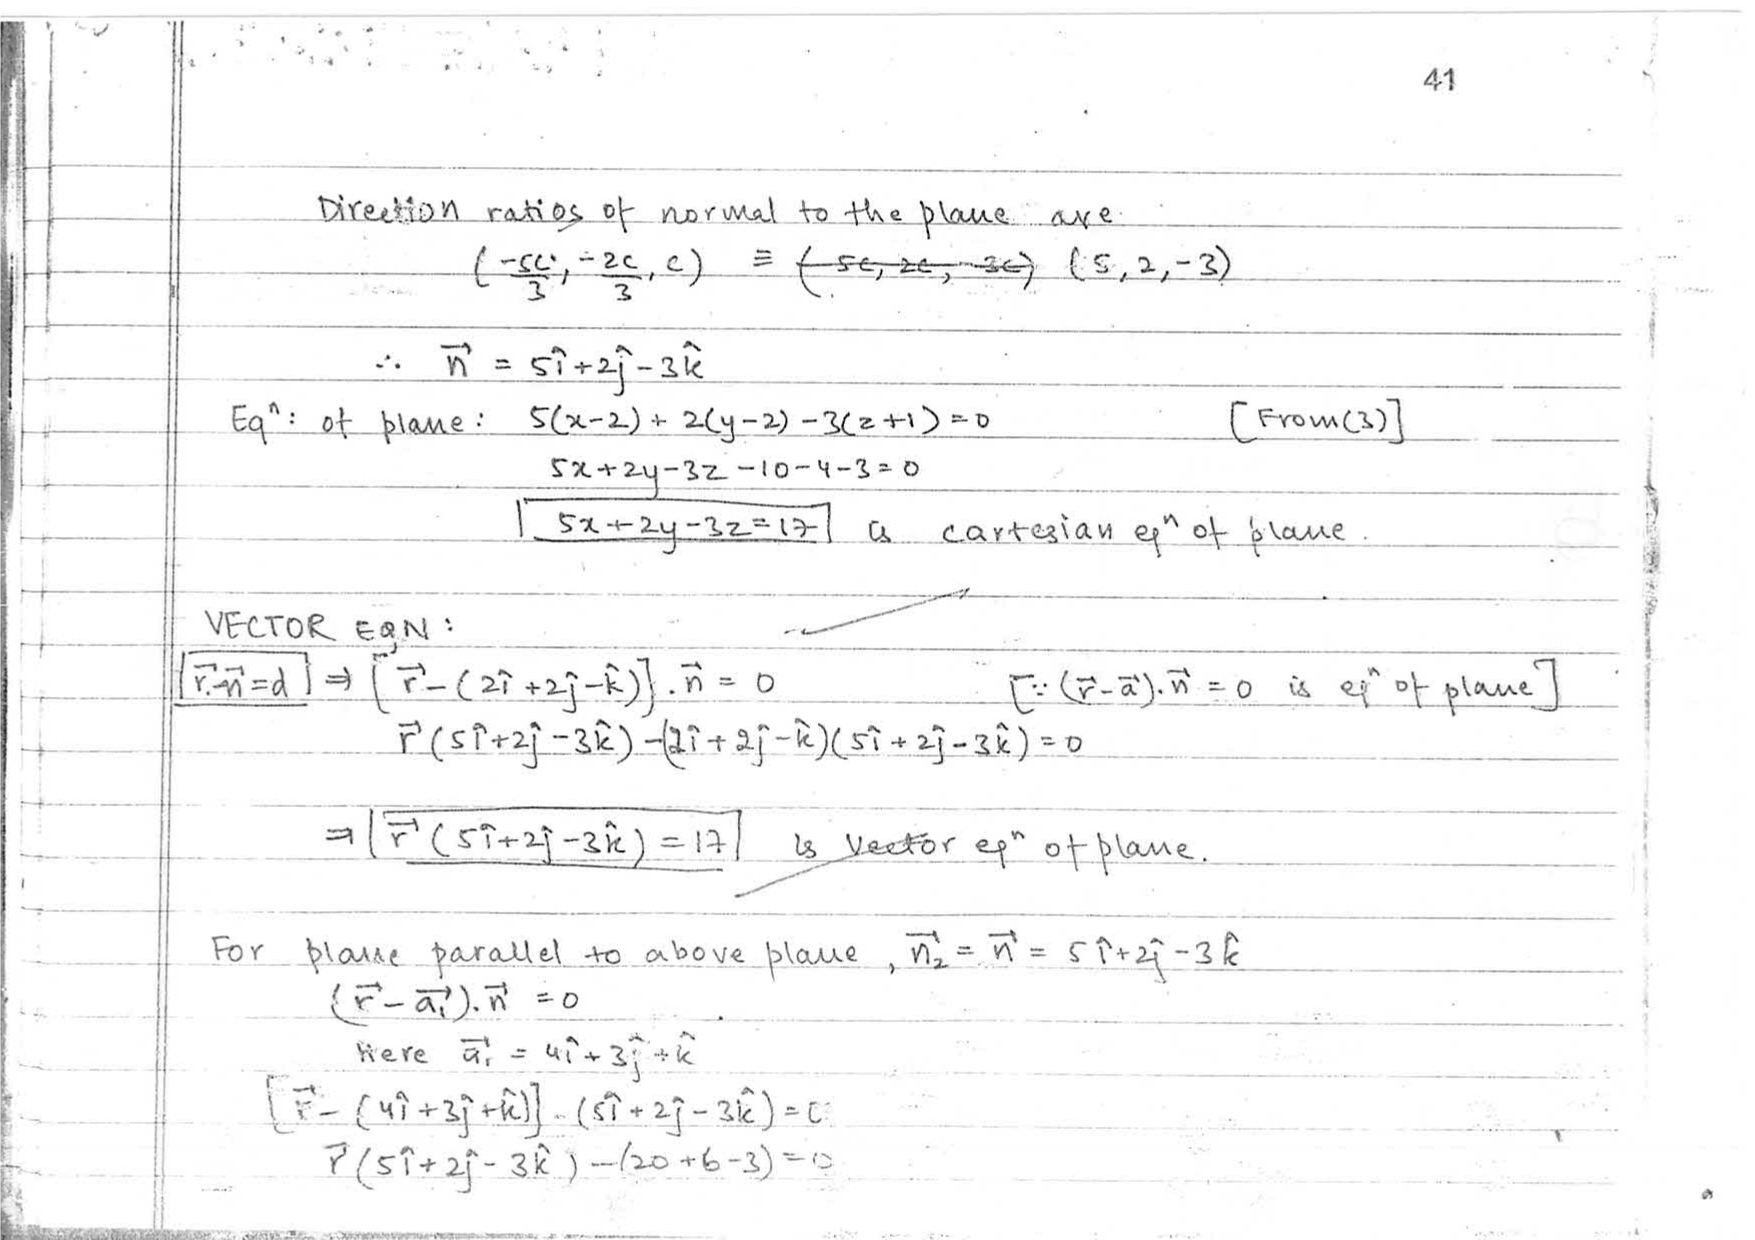 41
Direction ratios of normal to the plane are
(-5c/3, -2c/3, c) ≡ (5, 2, -3)
∴ n⃗ = 5î+2ĵ-3k̂
Eqⁿ: of plane: 5(x-2) + 2(y-2) -3(z+1) = 0 [From(3)]
5x+2y-3z -10-4-3=0
5x+2y-3z=17 is cartesian eqⁿ of plane.
VECTOR EQN:
r⃗.n⃗=d ⇒ [r⃗-(2î+2ĵ-k̂)].n⃗ = 0 [∵ (r⃗-a⃗).n⃗ = 0 is eqⁿ of plane]
r⃗(5î+2ĵ-3k̂)-(2î+2ĵ-k̂)(5î+2ĵ-3k̂)=0
⇒ r⃗(5î+2ĵ-3k̂)=17 is vector eqⁿ of plane.
For plane parallel to above plane, n⃗₂ = n⃗ = 5î+2ĵ-3k̂
(r⃗-a⃗₁).n⃗ =0
Here a⃗₁ = 4î+3ĵ+k̂
[r⃗-(4î+3ĵ+k̂)].(5î+2ĵ-3k̂)=0
r⃗(5î+2ĵ-3k̂)-(20+6-3)=0